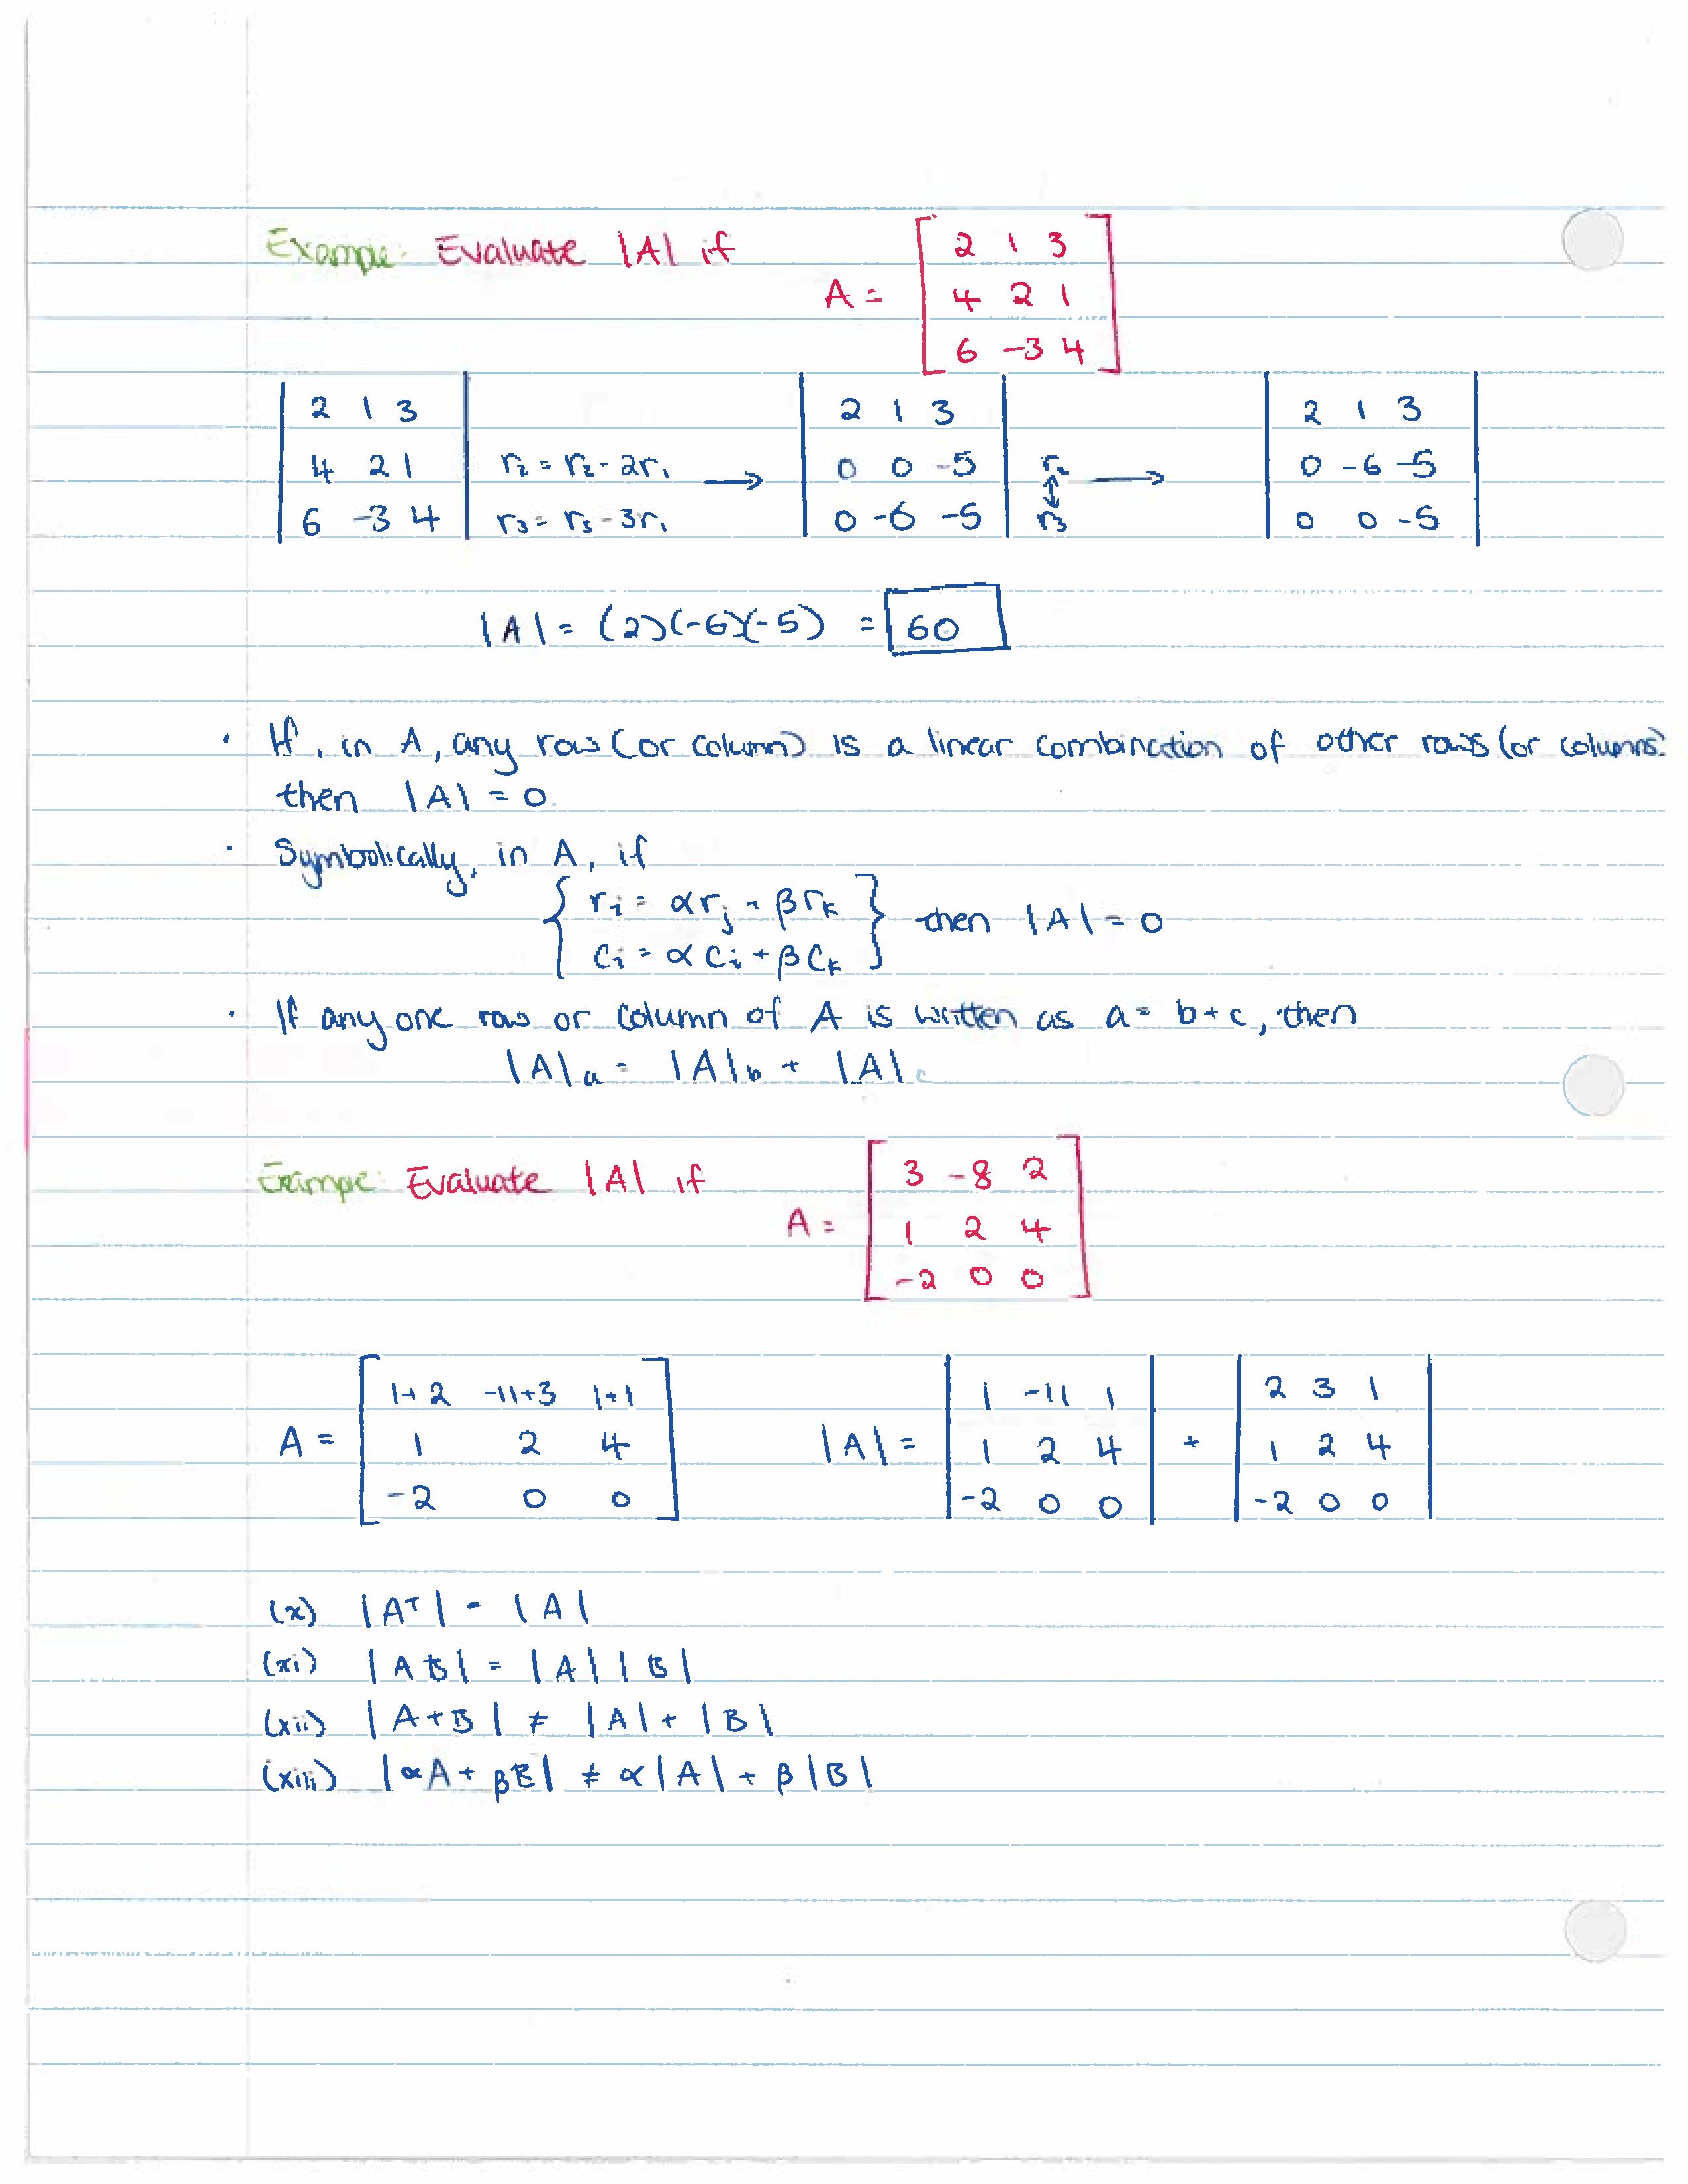 Example: Evaluate |A| if
A = [ 2 1 3
4 2 1
6 -3 4 ]
| 2 1 3 | | 2 1 3 | | 2 1 3 |
| 4 2 1 | r₂ = r₂ - 2r₁ → | 0 0 -5 | r₃ ↔ r₂ → | 0 -6 -5 |
| 6 -3 4 | r₃ = r₃ - 3r₁ | 0 -6 -5 | | 0 0 -5 |
|A| = (2)(-6)(-5) = 60
· If, in A, any row (or column) is a linear combination of other rows (or columns)
then |A| = 0.
· Symbolically, in A, if
{ rᵢ = αrⱼ + βrₖ
cᵢ = αcᵢ + βcₖ } then |A| = 0
· If any one row or column of A is written as a = b + c, then
|A|a = |A|b + |A|c
Example: Evaluate |A| if
A = [ 3 -8 2
1 2 4
-2 0 0 ]
[ 1+2 -11+3 1+1 ] | 1 -11 1 | | 2 3 1 |
A = [ 1 2 4 ] |A| = | 1 2 4 | + | 1 2 4 |
[ -2 0 0 ] | -2 0 0 | | -2 0 0 |
(x) |Aᵀ| = |A|
(xi) |AB| = |A||B|
(xii) |A+B| ≠ |A| + |B|
(xiii) |αA + βB| ≠ α|A| + β|B|